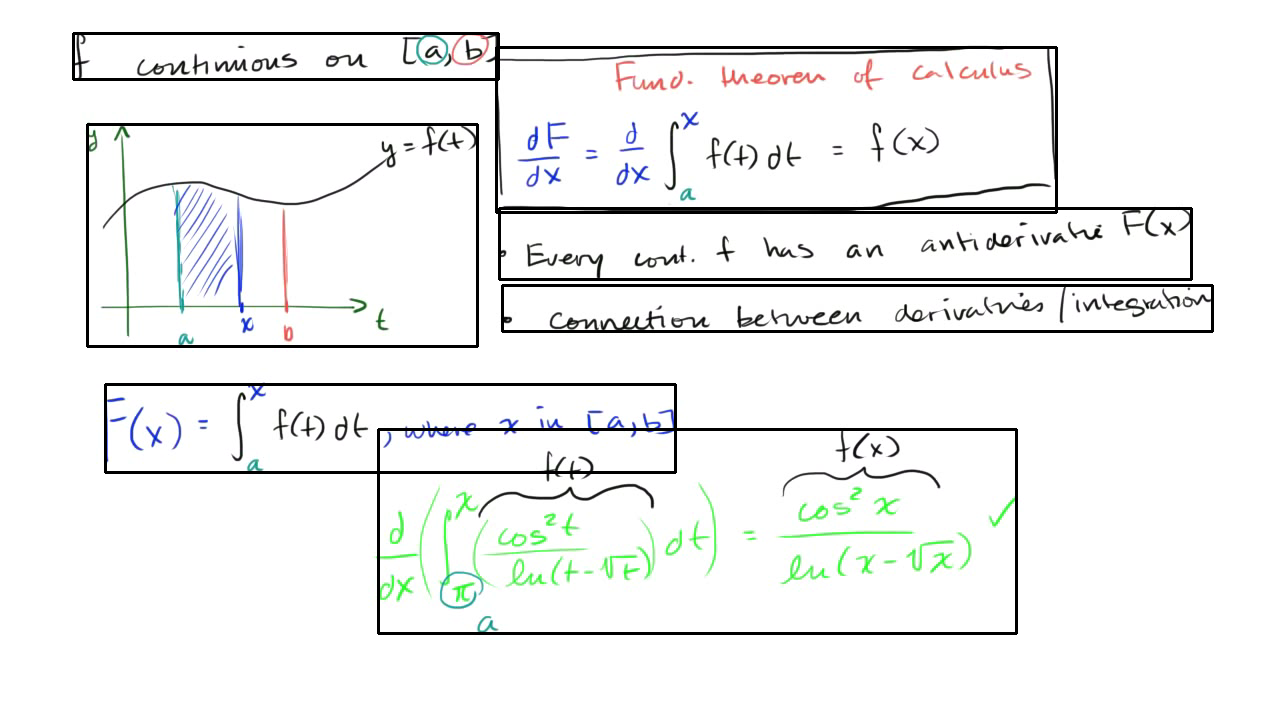 f continuous on [a, b]
Fund. theorem of calculus
dF/dx = d/dx ∫_a^x f(t) dt = f(x)
y
y = f(t)
a
x
b
t
• Every cont. f has an antiderivative F(x)
• connection between derivatives / integration
F(x) = ∫_a^x f(t) dt, where x in [a, b]
f(t)
f(x)
d/dx ( ∫_π^x ( cos²t / ln(t-√t) ) dt ) = cos² x / ln(x-√x) ✓
a